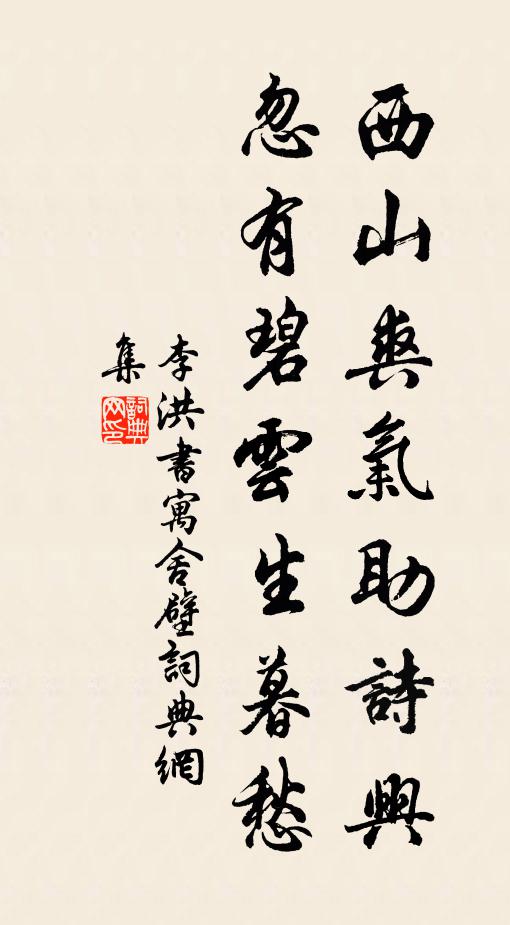 西山爽氣助詩興
忽有碧雲生暮愁
李洪書寓舍壁詞典網
集
詞典網印